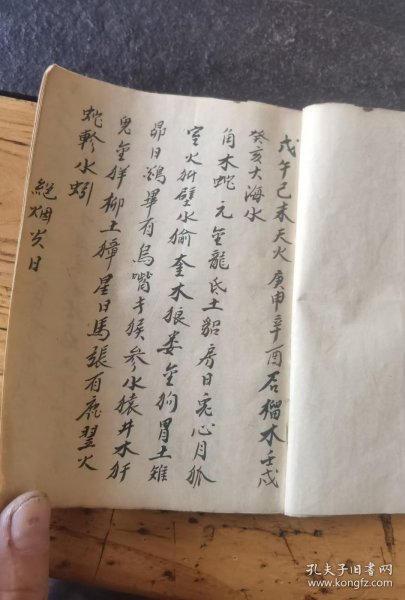 戊午己未天火 庚申辛酉石榴木 壬戌
癸亥大海水
角木蛇 元金龍 氐土貂 房日兎 心月狐
室火犴 壁水俞 奎木狼 娄金狗 胃土雉
昴日鷄 畢有烏 嘴才猴 参水猿 井木犴
鬼金羊 柳土獐 星日馬 張有鹿 翌火
蛇 軫水蚓
絕烟火日
孔夫子旧书网
www.kongfz.com